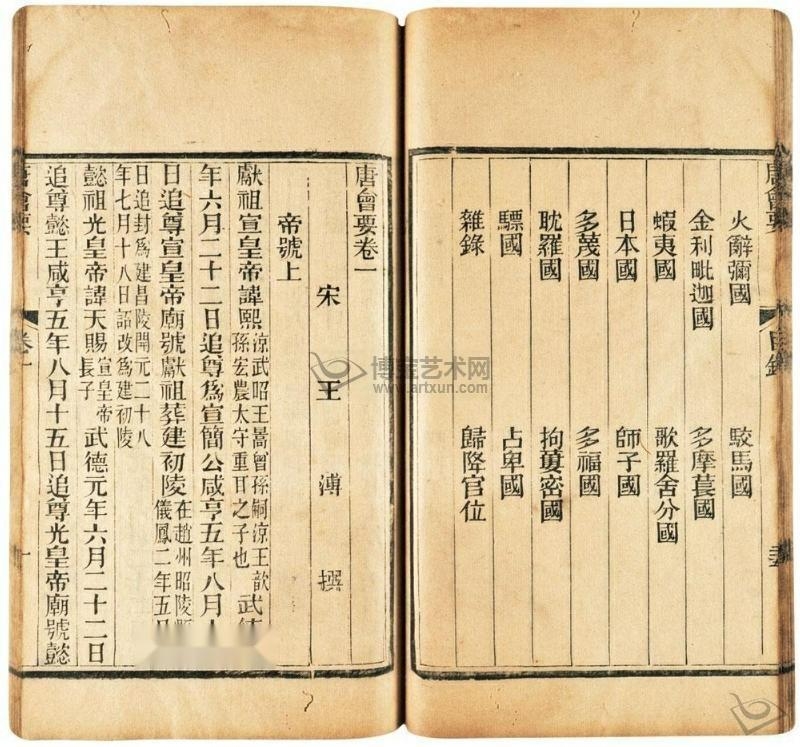 唐會要
目錄
火辭彌國 駮馬國
金利毗迦國 多摩萇國
蝦夷國 歌羅舍分國
日本國 師子國
多蔑國 多福國
耽羅國 拘蔞密國
驃國 占卑國
雜錄 歸降官位
唐會要卷一
宋 王 溥 撰
帝號上
獻祖宣皇帝諱熙 涼武昭王暠曾孫嗣涼王歆
孫宏農太守重耳之子也 武德
年六月二十二日追尊爲宣簡公咸亨五年八月十
日追尊宣皇帝廟號獻祖葬建初陵 在趙州昭陵縣
儀鳳二年五月
日追封爲建昌陵開元二十八
年七月十八日詔改爲建初陵
懿祖光皇帝諱天賜 宣皇帝
長子 武德元年六月二十二日
追尊懿王咸亨五年八月十五日追尊光皇帝廟號懿
唐會要
卷一
一
博宝艺术网
www.artxun.com